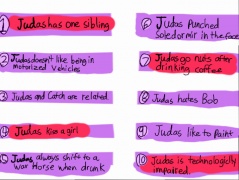 1 Judas has one sibling
2 Judas doesn't like being in
motorized vehicles
3 Judas and Catch are related.
4 Judas is a girl
5 Judas always shift to a
War Horse when drunk
6 Judas Punched
Soledormir in the face
7 Judas go nuts after
drinking coffee
8 Judas hates Bob
9 Judas like to Paint
10 Judas is technologiclly
impaired.